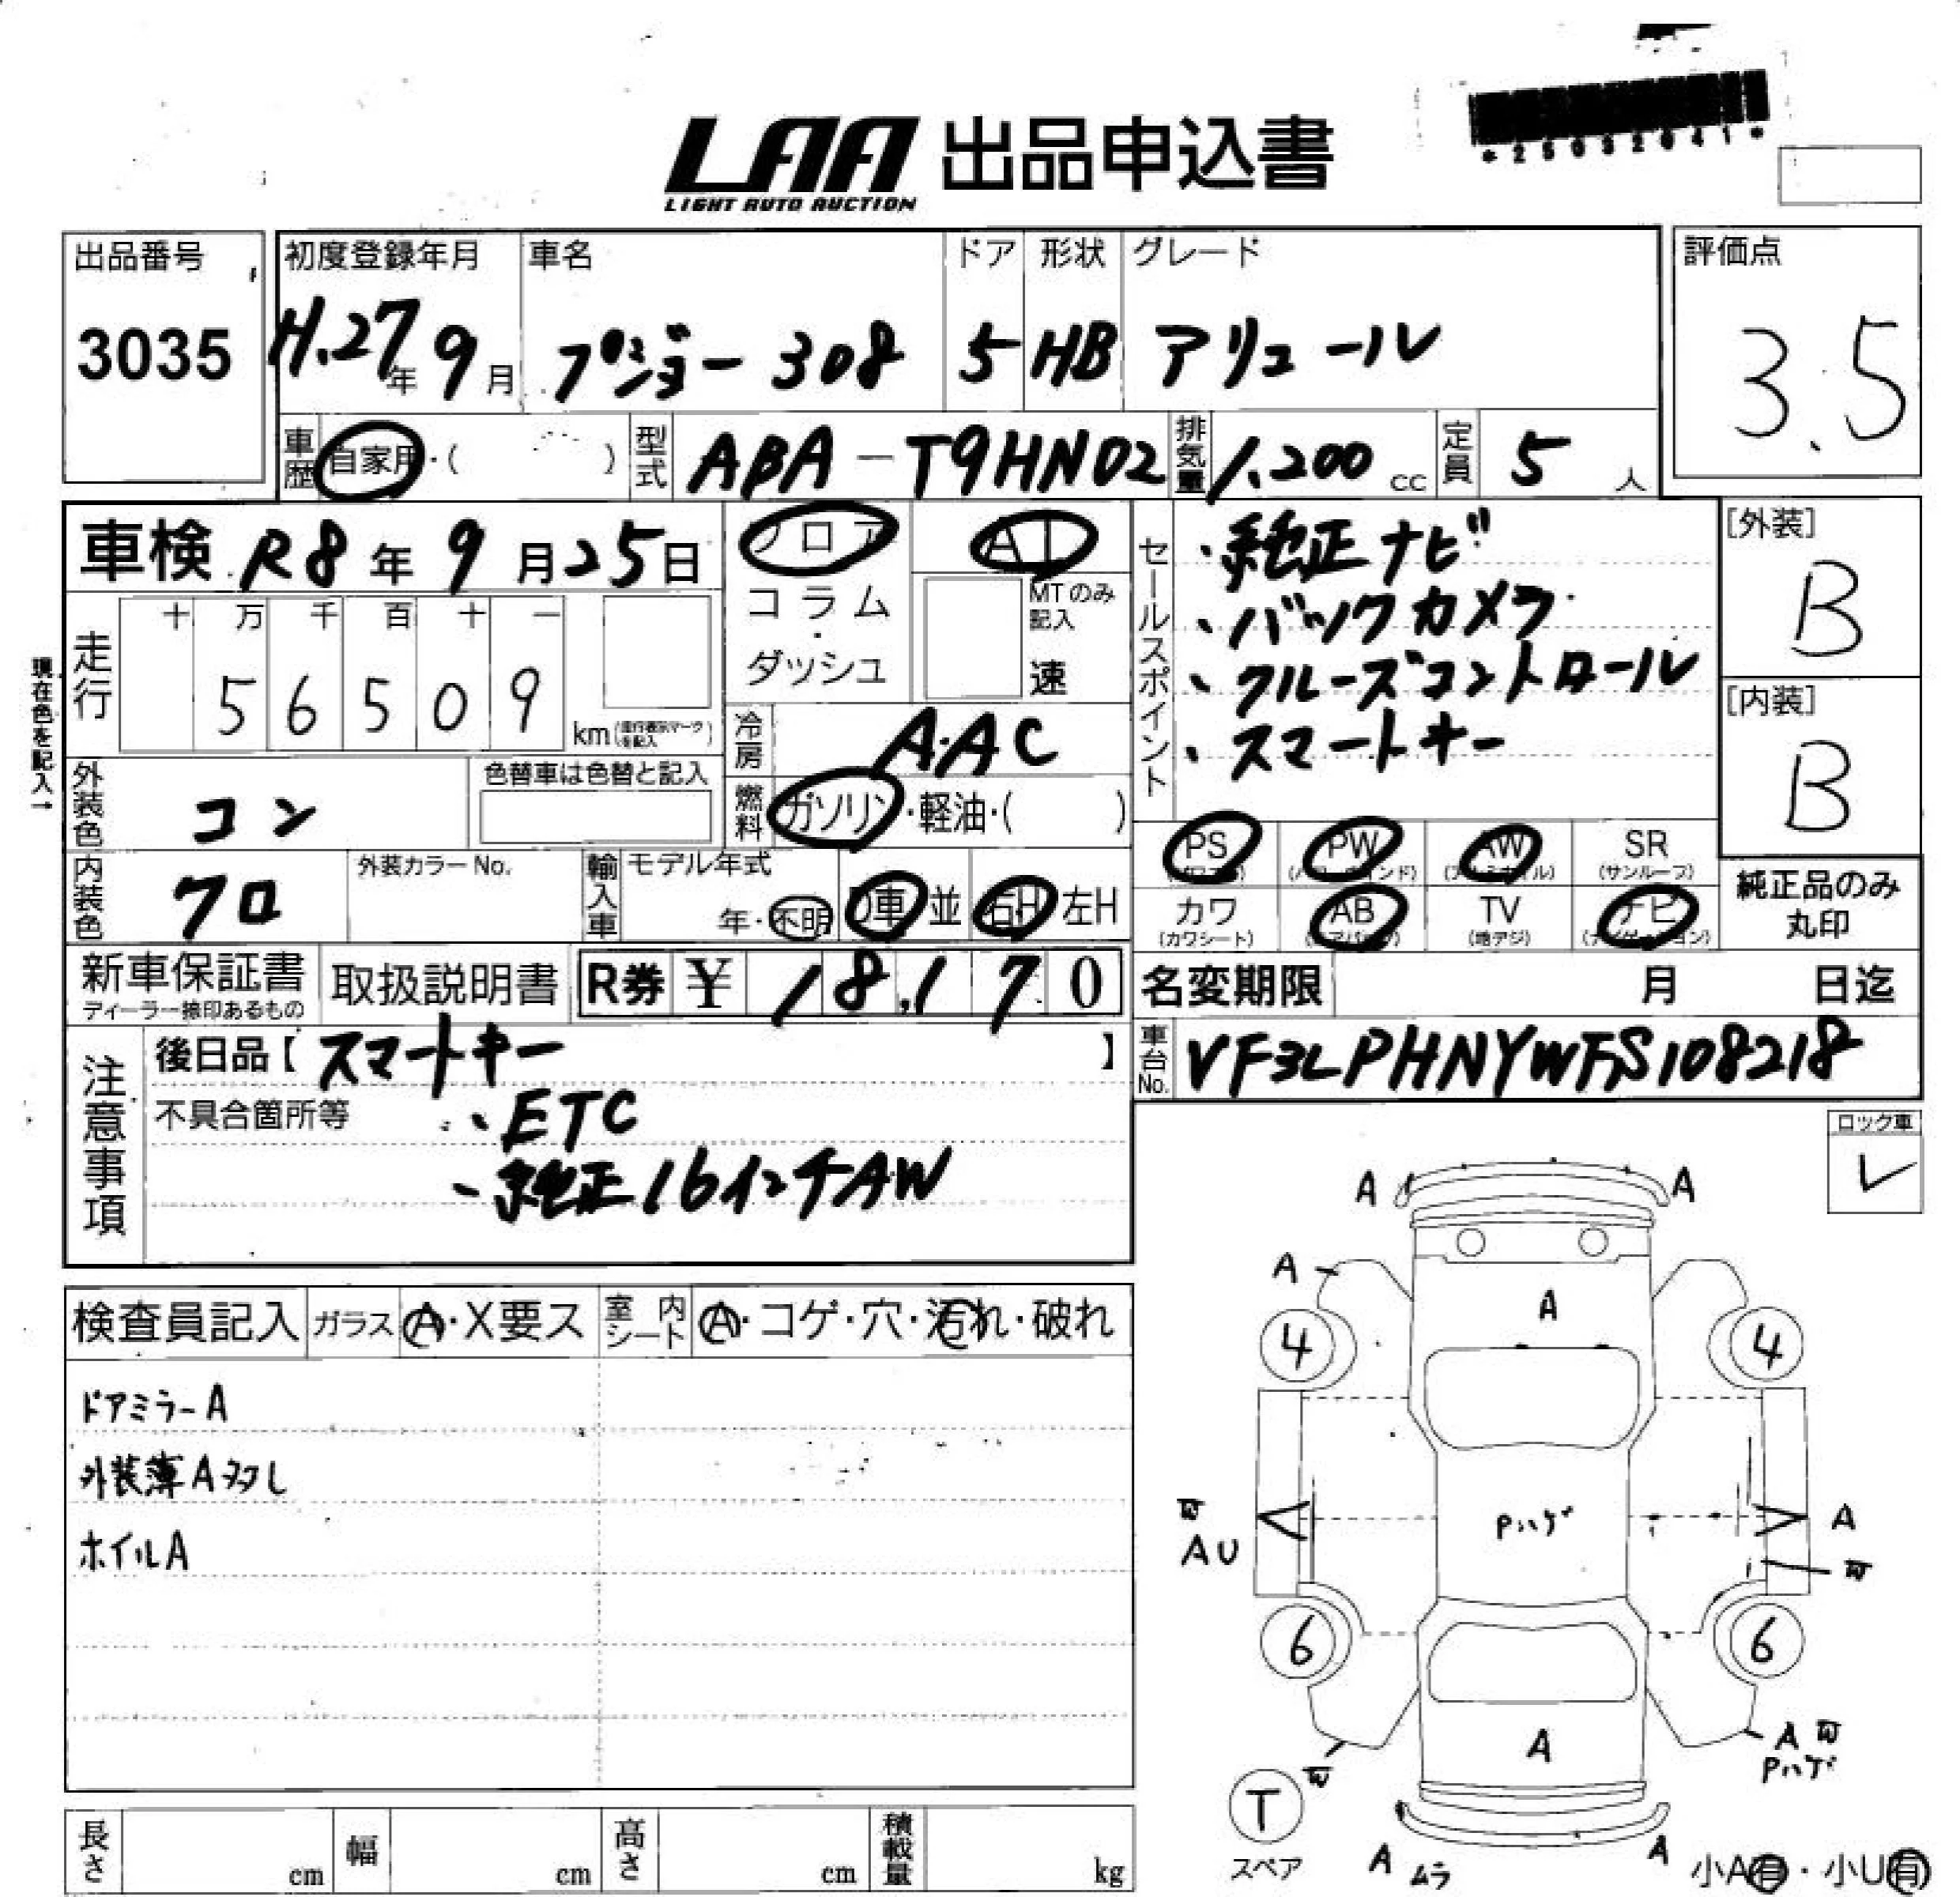 *25032041*
LAA 出品申込書
LIGHT AUTO AUCTION
出品番号
3035
初度登録年月
H.27年 9月
車名
プジョー 308
ドア
5
形状
HB
グレード
アリュール
評価点
3.5
車歴 自家用・( )
型式 ABA-T9HN02
排気量 1.200 cc
定員 5 人
車検 R8年 9月25日
フロア
コラム・ダッシュ
AT
MTのみ記入
速
走行 十 万 千 百 十 一
5 6 5 0 9 km (走行表示マークを記入)
現在色を記入→
冷房 A.AC
燃料 ガソリン・軽油・( )
外装色 コン
色替車は色替と記入
内装色 クロ
外装カラーNo.
輸入車 モデル年式
年・不明 D車 並 右H 左H
セールスポイント
・純正ナビ
、バックカメラ
、クルーズコントロール
、スマートキー
[外装]
B
[内装]
B
PS PW AW SR
(パワステ) (パワーウインド) (アルミホイル) (サンルーフ)
カワ AB TV ナビ
(カワシート) (エアバッグ) (地デジ) (ナビゲーション)
純正品のみ丸印
新車保証書
ディーラー捺印あるもの
取扱説明書
R券 ¥ 18,170
名変期限 月 日迄
車台No. VF3LPHNYWFS108218
注意事項
後日品【 スマートキー 】
不具合箇所等
、ETC
、純正16インチAW
ロック車
レ
検査員記入 ガラス A・X要ス 室内シート A・コゲ・穴・汚れ・破れ
ドアミラーA
外装薄A多し
ホイルA
A A
A
A
4 4
W
AU
Pハゲ
A
W
6 6
A
A W
Pハゲ
W
T
スペア
A ムラ
A
小A有・小U有
長さ cm 幅 cm 高さ cm 積載量 kg